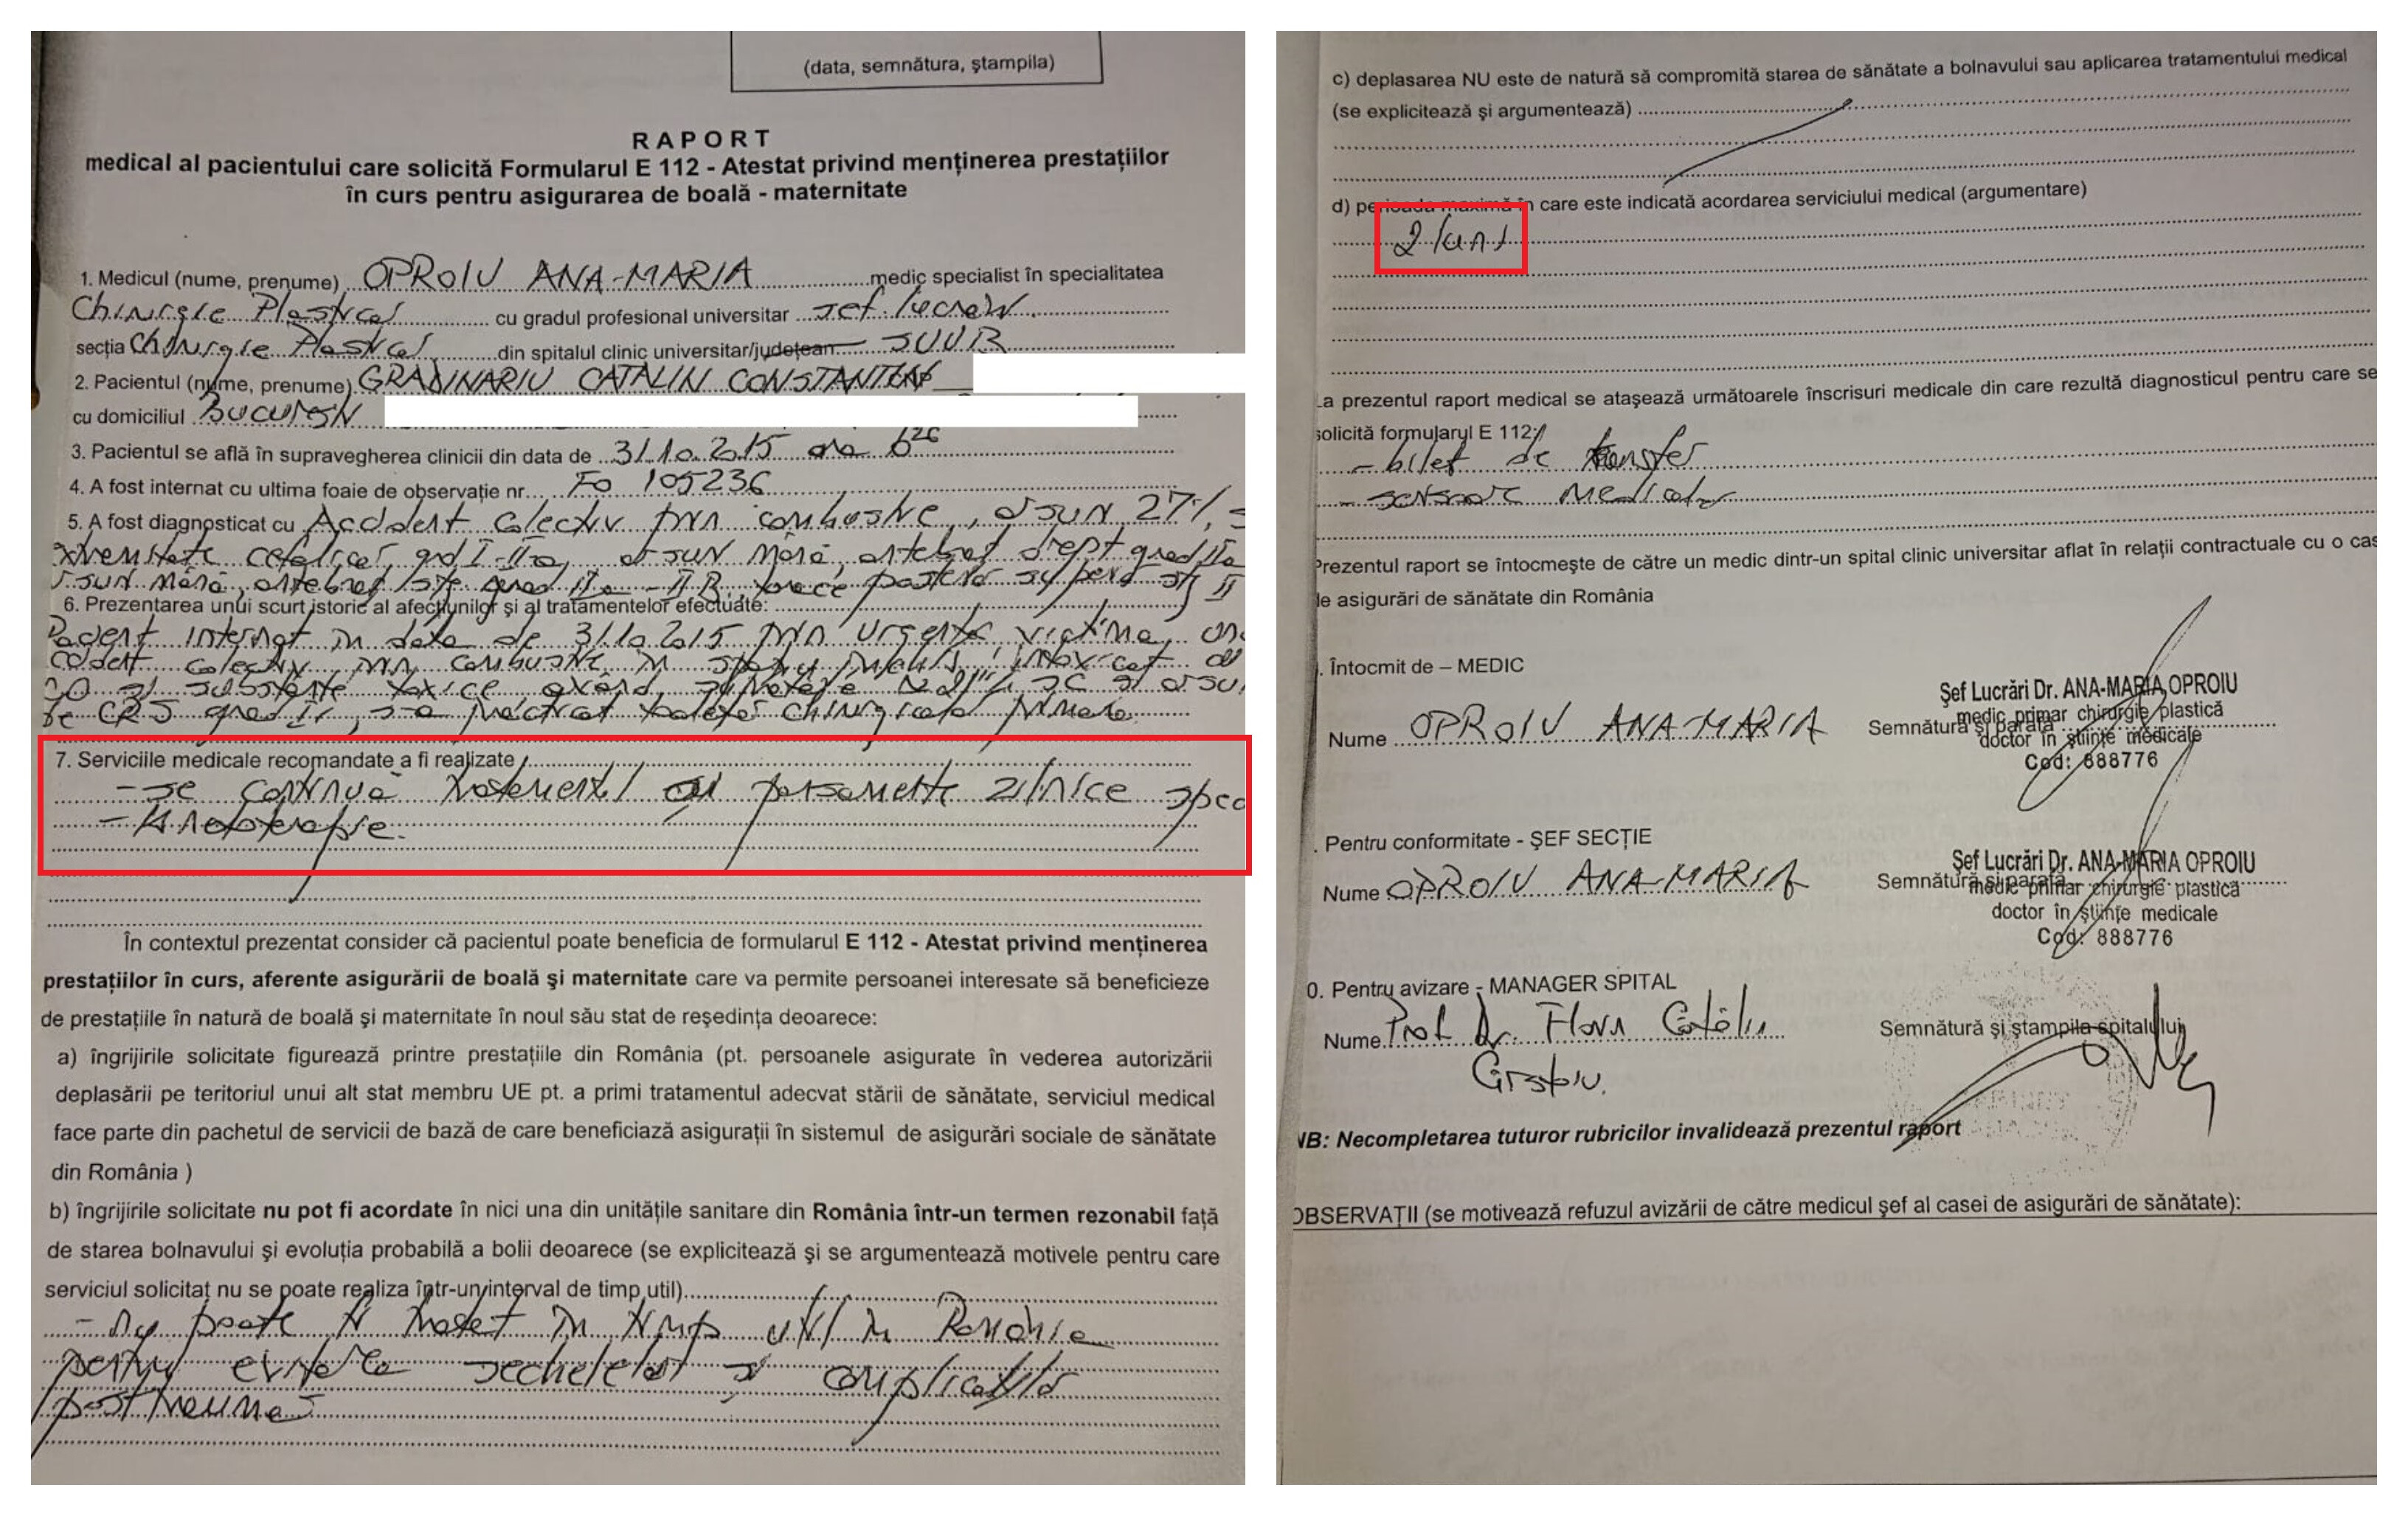 (data, semnătura, ştampila)
RAPORT
medical al pacientului care solicită Formularul E 112 - Atestat privind menţinerea prestaţiilor
în curs pentru asigurarea de boală - maternitate
1. Medicul (nume, prenume) OPROIU ANA-MARIA medic specialist în specialitatea
Chirurgie Plastică cu gradul profesional universitar şef lucrări
secţia Chirurgie Plastică din spitalul clinic universitar/judeţean SUUB
2. Pacientul (nume, prenume) GRADINARIU CATALIN CONSTANTIN
cu domiciliul Bucureşti
3. Pacientul se află în supravegherea clinicii din data de 31.10.2015 ora 6 26
4. A fost internat cu ultima foaie de observaţie nr. FO 105236
5. A fost diagnosticat cu Accident colectiv prin combustie, arsuri 27%,
extremitate cefalică, grd I-IIa, arsuri mână, antebraţ drept grad IIa
arsuri mână, antebraţ stg grad IIa - IIB, torace posterior superior stg II
6. Prezentarea unui scurt istoric al afecţiunilor şi al tratamentelor efectuate:
Pacient internat în data de 31.10.2015 prin urgenţă victima
accident colectiv prin combustie în spaţiu închis, intoxicat cu
CO şi substanţe toxice având SC şi arsu
de CRS grad II, s-a practicat toaleta chirurgicală primară.
7. Serviciile medicale recomandate a fi realizate
- se continuă tratamentul cu pansamente zilnice
- Kinetoterapie.
În contextul prezentat consider că pacientul poate beneficia de formularul E 112 - Atestat privind menţinerea
prestaţiilor în curs, aferente asigurării de boală şi maternitate care va permite persoanei interesate să beneficieze
de prestaţiile în natură de boală şi maternitate în noul său stat de reşedinţa deoarece:
a) îngrijirile solicitate figurează printre prestaţiile din România (pt. persoanele asigurate în vederea autorizării
deplasării pe teritoriul unui alt stat membru UE pt. a primi tratamentul adecvat stării de sănătate, serviciul medical
face parte din pachetul de servicii de bază de care beneficiază asiguraţii în sistemul de asigurări sociale de sănătate
din România )
b) îngrijirile solicitate nu pot fi acordate în nici una din unităţile sanitare din România într-un termen rezonabil faţă
de starea bolnavului şi evoluţia probabilă a bolii deoarece (se explicitează şi se argumentează motivele pentru care
serviciul solicitat nu se poate realiza într-un interval de timp util)
- nu poate fi tratat în timp util în România
pentru evitarea sechelelor şi complicaţiilor
posttraumă
c) deplasarea NU este de natură să compromită starea de sănătate a bolnavului sau aplicarea tratamentului medical
(se explicitează şi argumentează)
d) perioada maximă în care este indicată acordarea serviciului medical (argumentare)
2 luni
La prezentul raport medical se ataşează următoarele înscrisuri medicale din care rezultă diagnosticul pentru care se
solicită formularul E 112:
- bilet de transfer
- scrisoare medicală
Prezentul raport se întocmeşte de către un medic dintr-un spital clinic universitar aflat în relaţii contractuale cu o cas
de asigurări de sănătate din România
. Întocmit de – MEDIC
Nume OPROIU ANA-MARIA Semnătura şi parafa
Şef Lucrări Dr. ANA-MARIA OPROIU
medic primar chirurgie plastică
doctor în ştiinţe medicale
Cod: 888776
. Pentru conformitate - ŞEF SECŢIE
Nume OPROIU ANA-MARIA Semnătura şi parafa
Şef Lucrări Dr. ANA-MARIA OPROIU
medic primar chirurgie plastică
doctor în ştiinţe medicale
Cod: 888776
0. Pentru avizare - MANAGER SPITAL
Nume Prof Dr. Florin Cătălin Semnătură şi ştampila spitalului
Cîrstoiu.
NB: Necompletarea tuturor rubricilor invalidează prezentul raport
OBSERVAŢII (se motivează refuzul avizării de către medicul şef al casei de asigurări de sănătate):